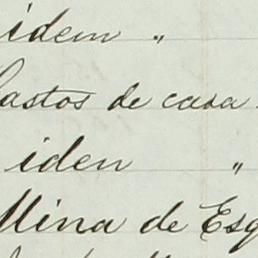 idem "
Gastos de casa
iden "
Mina de Esq